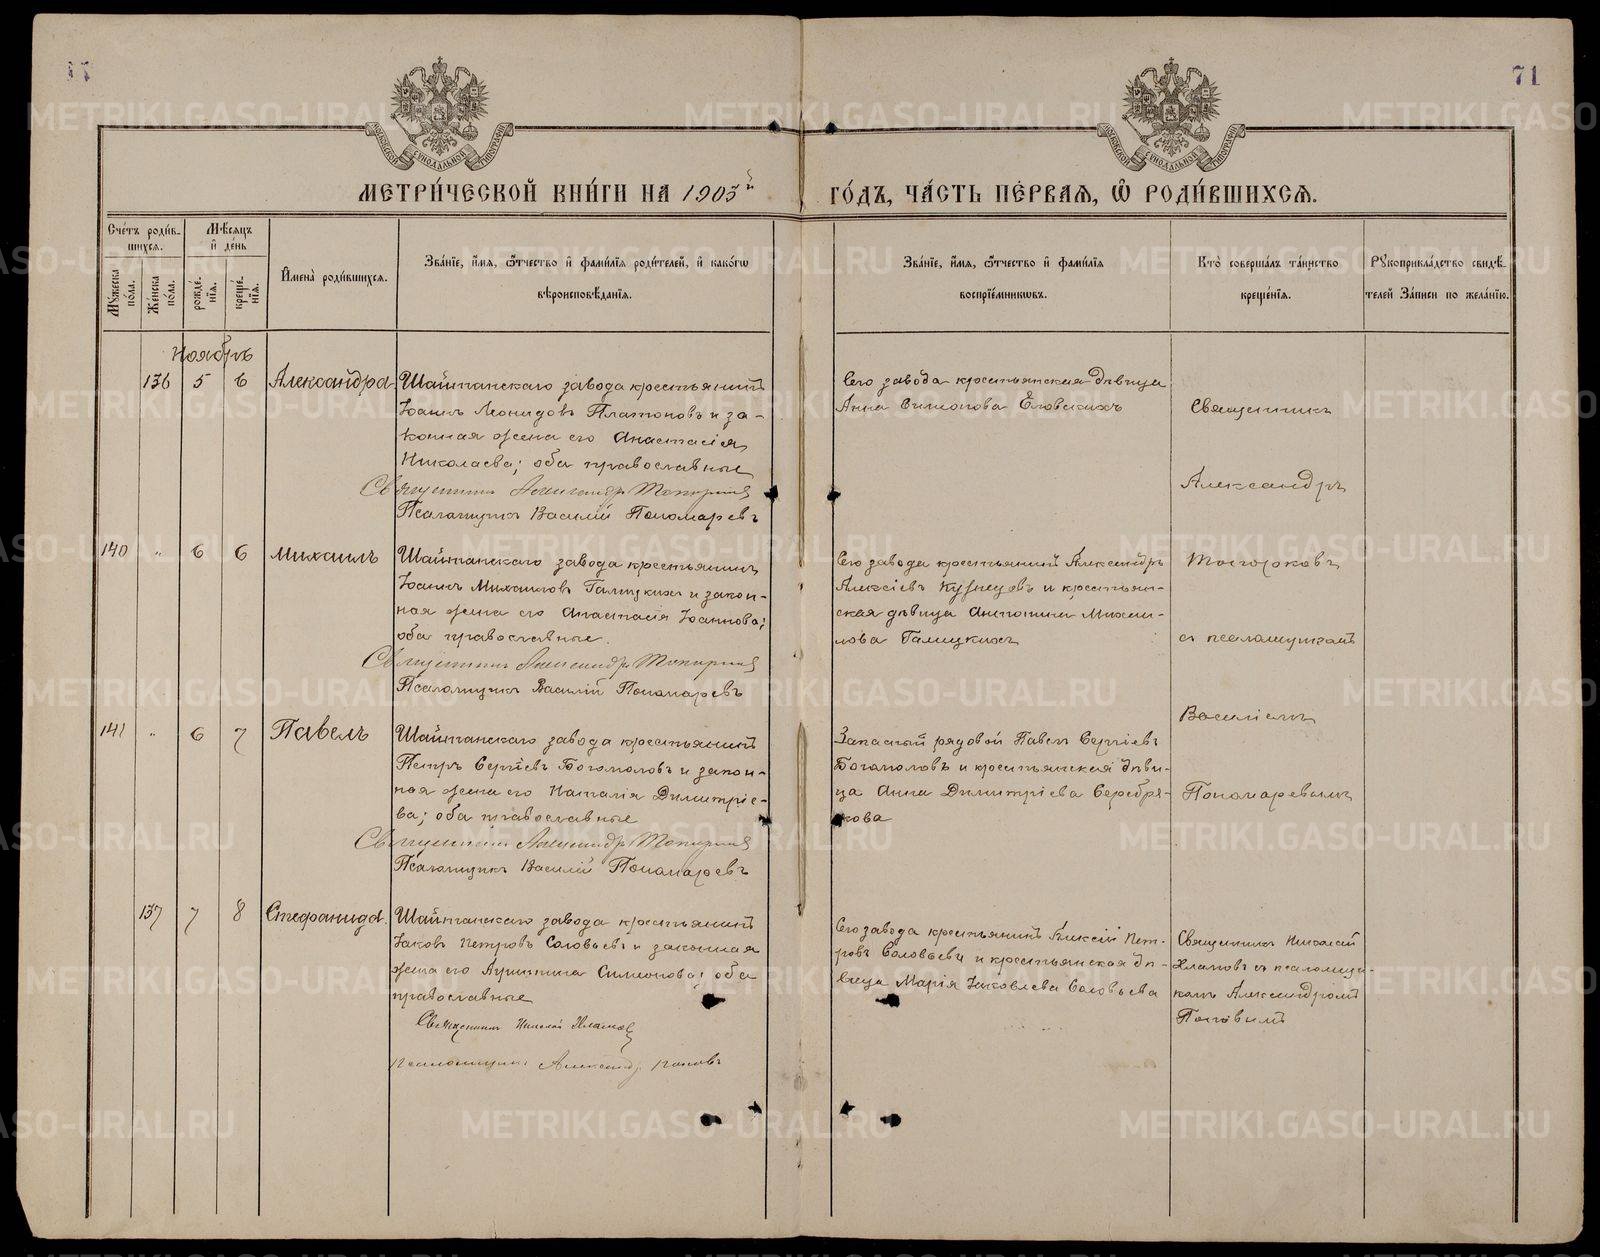 71
МОСКОВСКОЙ СѴНОДАЛЬНОЙ ТИПОГРАФІИ
МОСКОВСКОЙ СѴНОДАЛЬНОЙ ТИПОГРАФІИ
МЕТРИ́ЧЕСКОЙ КНИ́ГИ НА 1903й ГО́ДЪ, ЧА́СТЬ ПЕ́РВАЯ, Ѡ РОДИ́ВШИХСЯ.
Сче́тъ роди́в-
шихся.
Мѣ́сяцъ
и҆ де́нь
Мꙋ́жеска по́ла.
Же́нска по́ла.
рожде́нїя.
креще́нїя.
И҆мена̀ роди́вшихся.
Зва́нїе, и҆́мя, ѻ҆́тчество и҆ фами́лїя роди́телей, и҆ како́гѡ
вѣроисповѣ́данїя.
Зва́нїе, и҆́мя, ѻ҆́тчество и҆ фами́лїя
воспрїе́мникѡвъ.
Кто̀ соверша́лъ та́инство
креще́нїя.
Рꙋкоприкла́дство свидѣ́-
телей За́писи по жела́нїю.
Ноябрь
136 5 6 Александра
Шайтанскаго завода крестьянинъ
Іоаннъ Леонидовъ Платоновъ и за-
конная жена его Анастасія
Николаева; оба православные
Священникъ Александръ Топорков
Псаломщикъ Василій Пономаревъ
Сего завода крестьянская дѣвица
Анна Симонова Еловскихъ
Священникъ
Александръ
Топорковъ
съ псаломщикомъ
Василіемъ
Пономаревымъ
140 " 6 6 Михаилъ
Шайтанскаго завода крестьянинъ
Іоаннъ Михаиловъ Галицкихъ и закон-
ная жена его Анастасія Іоаннова;
оба православные.
Священникъ Александръ Топорков
Псаломщикъ Василій Пономаревъ
Сего завода крестьянинъ Александръ
Алексіевъ Кузнецовъ и крестьян-
ская дѣвица Антонина Михаи-
лова Галицкихъ
141 " 6 7 Павелъ
Шайтанскаго завода крестьянинъ
Петръ Сергіевъ Богомоловъ и закон-
ная жена его Наталія Димитріе-
ва; оба православные
Священникъ Александръ Топорков
Псаломщикъ Василій Пономаревъ
Запасный рядовой Павелъ Сергіевъ
Богомоловъ и крестьянская дѣви-
ца Анна Димитріева Серебря-
кова
137 7 8 Стефанида
Шайтанскаго завода крестьянинъ
Іаковъ Петровъ Соловьевъ и законная
жена его Симеонова; оба
православные
Священникъ Николай Хламов
Псаломщикъ Александръ Поповъ
Сего завода крестьянинъ Алексій Пет-
ровъ Соловьевъ и крестьянская дѣ-
вица Марія Іаковлева Соловьева
Священникъ Николай
Хламовъ съ псаломщи-
комъ Александромъ
Поповымъ